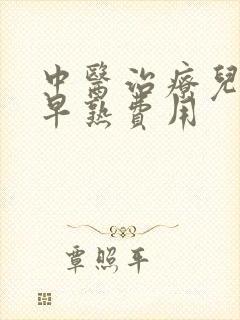 中醫治療兒
早熟費用
覃照平